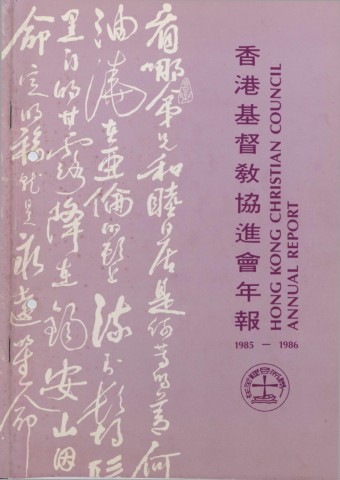 香港基督教協進會年報
HONG KONG CHRISTIAN COUNCIL
ANNUAL REPORT
1985 — 1986
看哪弟兄和睦居是何等的善何
油澆在亞倫的頭上流到鬍
黑門的甘露降在錫安山因
命定的福就是永遠生命